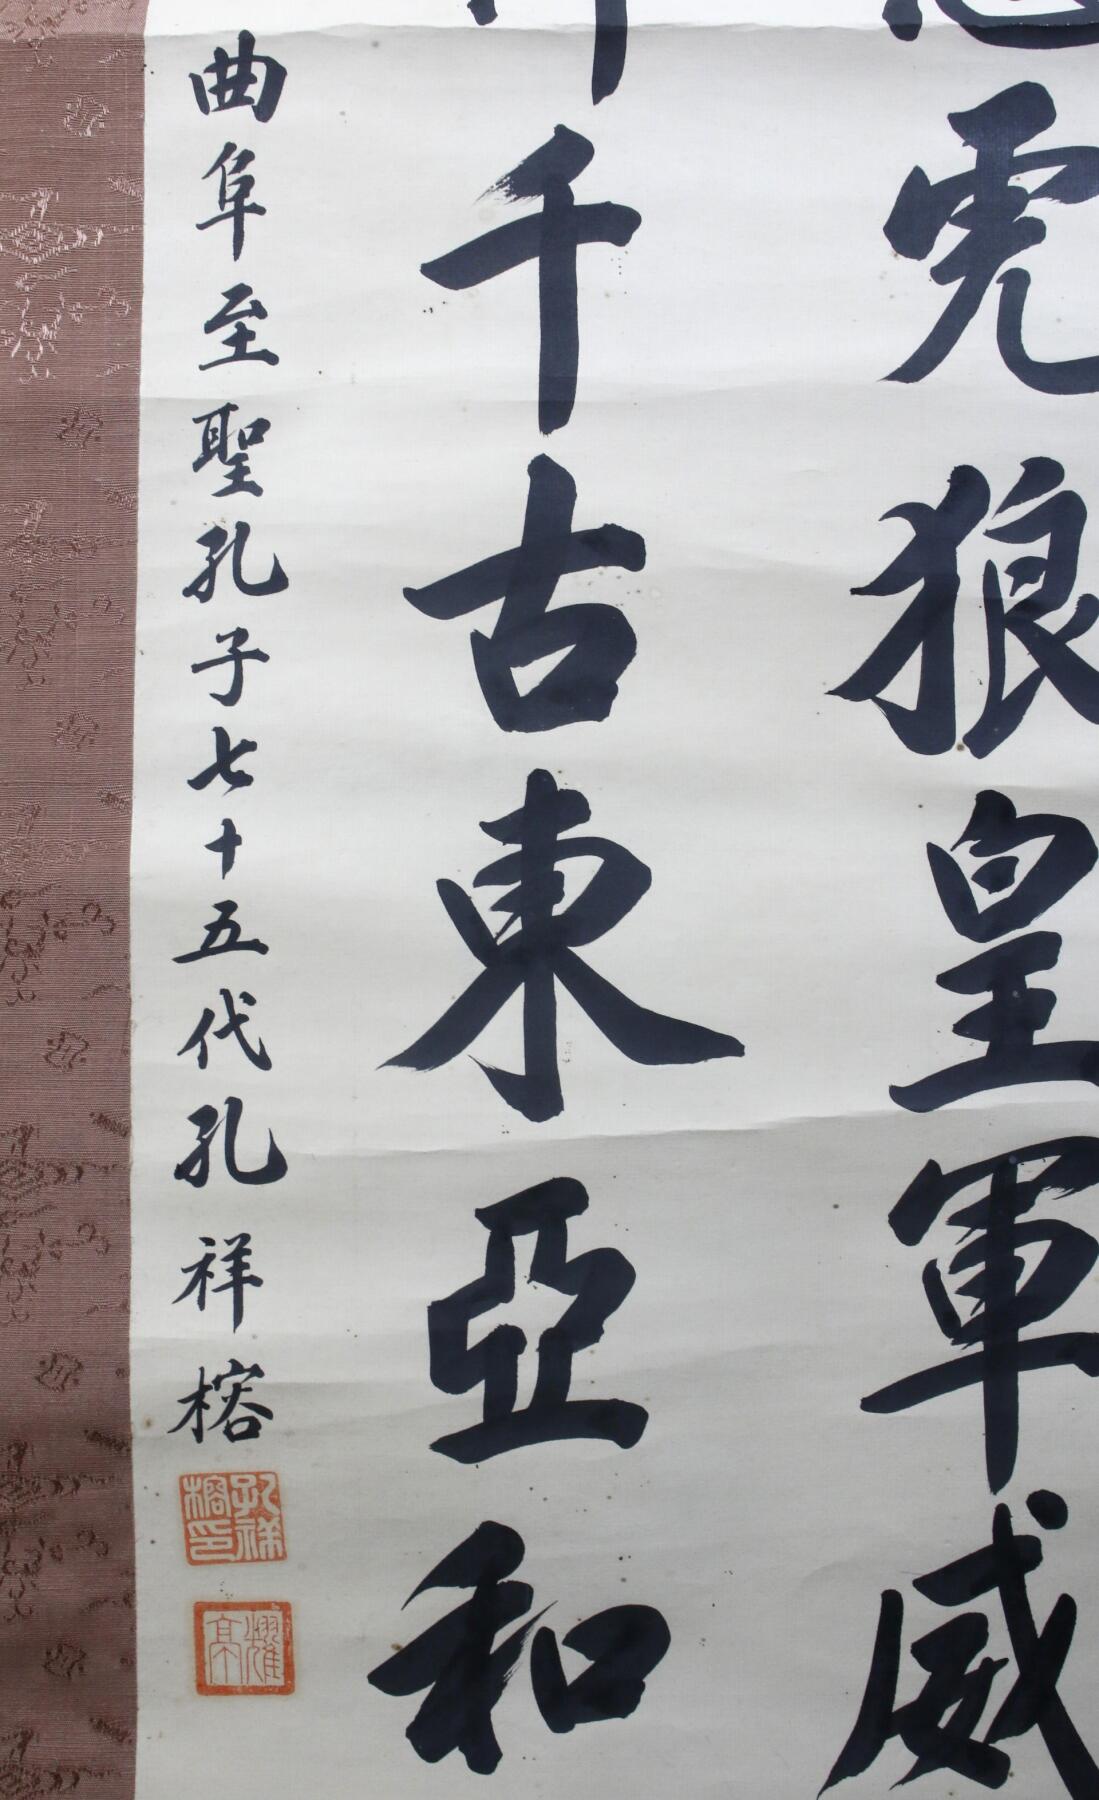 虎狼皇軍威
千古東亞和
曲阜至聖孔子七十五代孔祥榕
孔祥
榕印